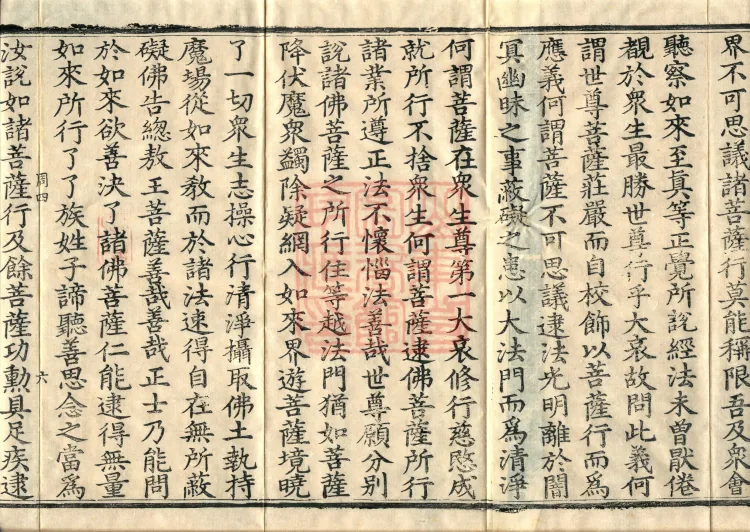 界不可思議諸菩薩行莫能稱限吾及眾會
聽察如來至真等正覺所說經法未曾猒倦
覩於眾生最勝世尊行乎大哀故問此義何
謂世尊菩薩莊嚴而自校飾以菩薩行而為
應義何謂菩薩不可思議逮法光明離於闇
冥幽昧之事蔽礙之患以大法門而為清淨
何謂菩薩在眾生尊第一大哀修行慈愍成
就所行不捨眾生何謂菩薩逮佛菩薩所行
諸業所遵正法不懷惱法善哉世尊願分別
說諸佛菩薩之所行住等越法門猶如菩薩
降伏魔眾蠲除疑網入如來界遊菩薩境曉
了一切眾生志操心行清淨攝取佛土執持
魔場從如來教而於諸法速得自在無所蔽
礙佛告總敖王菩薩善哉善哉正士乃能問
於如來欲善決了諸佛菩薩仁能逮得無量
如來所行了了族姓子諦聽善思念之當為
周四 六
汝說如諸菩薩行及餘菩薩功勳具足疾逮